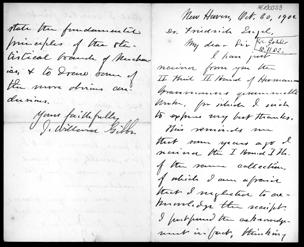 New Haven, Oct. 20, 1902
Dr. Friedrich Engel,
My dear Sir
I have just
received from you the
II Theil II Band of Hermann
Grassmanns gesammelte
Werke, for which I wish
to express my best thanks.
This reminds me
that some years ago I
received the I Band I Th.
of the same collection,
of which I am afraid
that I neglected to ac-
knowledge the receipt.
I postponed the acknowledg-
ment in fact, thinking
state the fundamental
principles of the sta-
tistical branch of Mechan-
ics, & to draw some of
the more obvious con-
clusions.
Yours faithfully
J. Willard Gibbs